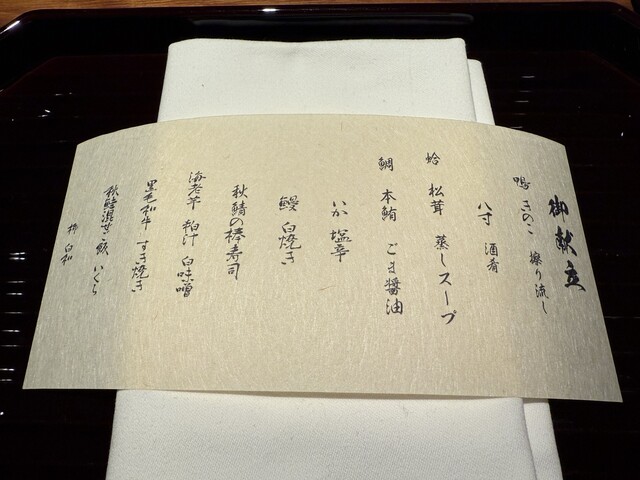 御献立
鴨 きのこ 擦り流し
八寸 酒肴
蛤 松茸 蒸しスープ
鯛 本鮪 ごま醤油
いか 塩辛
鰻 白焼き
秋鯖の棒寿司
海老芋 粕汁 白味噌
黒毛和牛 すき焼き
秋鮭混ぜご飯 いくら
柿 白和